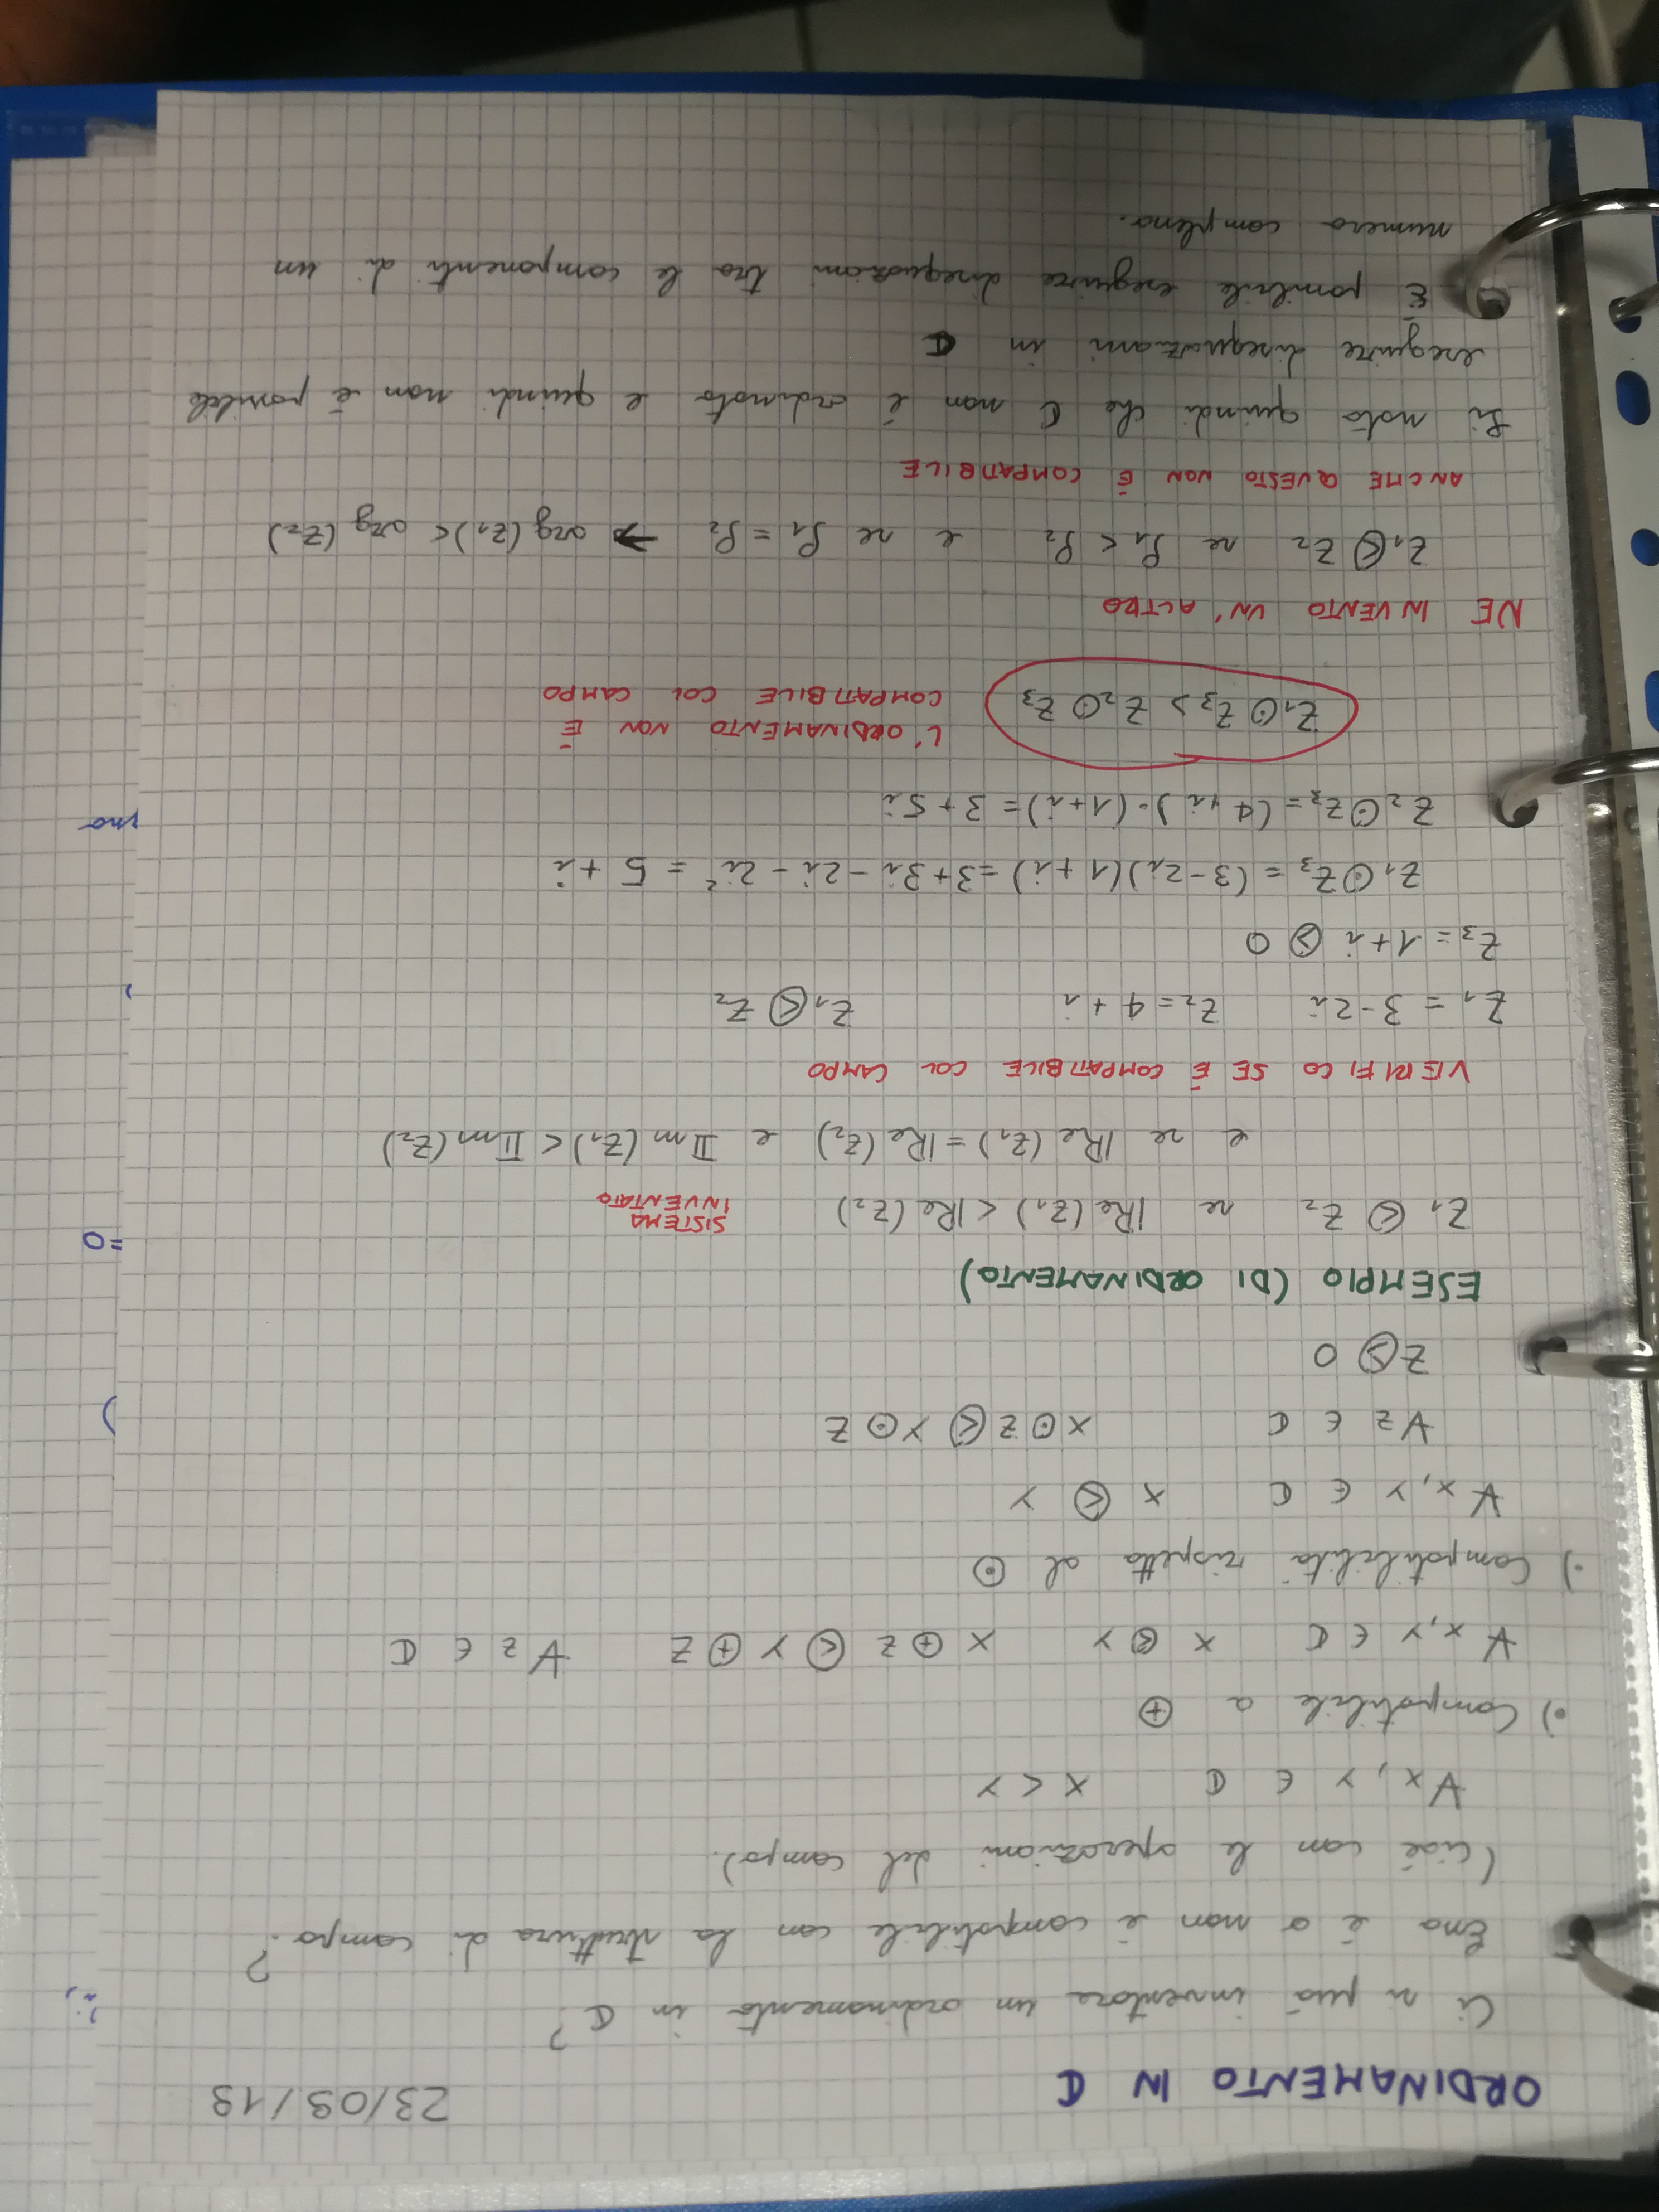 ORDINAMENTO IN ℂ 23/09/19
Ci si può inventare un ordinamento in ℂ?
Esso è o non è compatibile con la struttura di campo?
(cioè con le operazioni del campo).
∀x, y ∈ ℂ x < y
•) Compatibile a ⊕
∀ x, y ∈ ℂ x ⧀ y x ⊕ z ⧀ y ⊕ z ∀ z ∈ ℂ
•) Compatibilità rispetto al ⊙
∀ x, y ∈ ℂ x ⧀ y
∀ z ∈ ℂ x ⊙ z ⧀ y ⊙ z
z ⧁ 0
ESEMPIO (DI ORDINAMENTO)
z₁ ⧀ z₂ se ℝe(z₁) < ℝe(z₂) SISTEMA INVENTATO
e se ℝe(z₁) = ℝe(z₂) e 𝕀m(z₁) < 𝕀m(z₂)
VERIFICO SE É COMPATIBILE COL CAMPO
z₁ = 3-2i z₂ = 4 + i z₁ ⧀ z₂
z₃ = 1+i ⧁ 0
z₁ ⊙ z₃ = (3-2i)(1+i) = 3+3i-2i-2i² = 5 + i
z₂ ⊙ z₃ = (4+i)·(1+i) = 3+5i
z₁ ⊙ z₃ > z₂ ⊙ z₃ L'ORDINAMENTO NON É
COMPATIBILE COL CAMPO
NE INVENTO UN'ALTRO
z₁ ⧀ z₂ se ρ₁ < ρ₂ e se ρ₁ = ρ₂ → arg(z₁) < arg(z₂)
ANCHE QUESTO NON É COMPATIBILE
Si nota quindi che ℂ non é ordinato e quindi non é possibile
eseguire disequazioni in ℂ
É possibile eseguire disequazioni tra le componenti di un
numero complesso.
)
=0